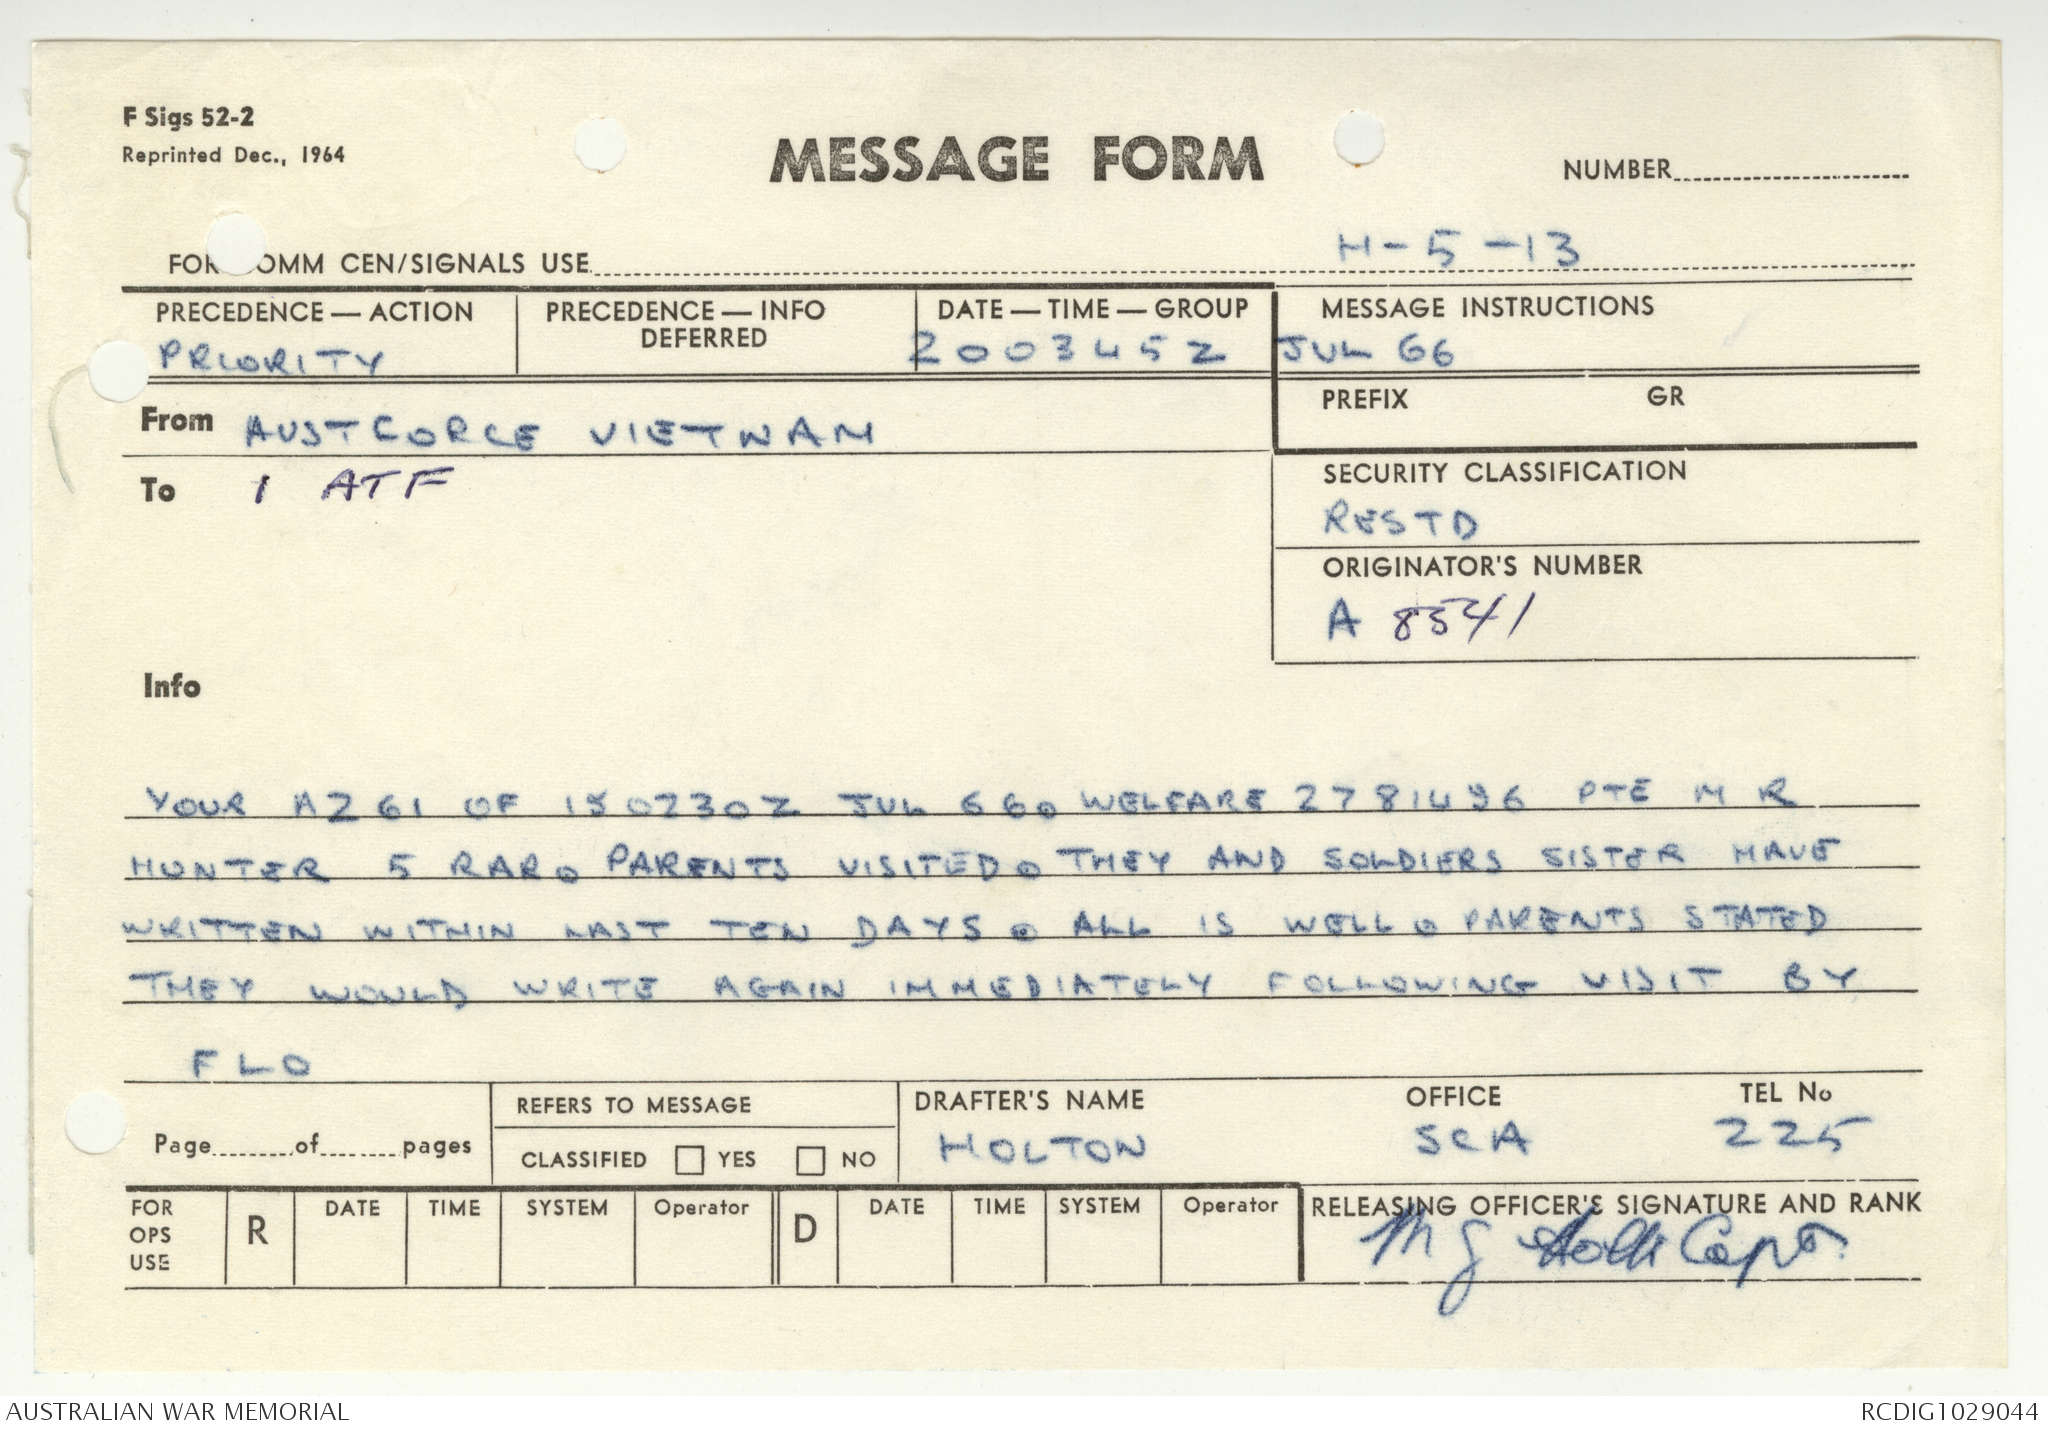 F Sigs 52-2
Reprinted Dec., 1964
MESSAGE FORM
NUMBER
FOR COMM CEN/SIGNALS USE H-5-13
PRECEDENCE — ACTION
PRIORITY
PRECEDENCE — INFO
DEFERRED
DATE — TIME — GROUP
200345Z JUL 66
MESSAGE INSTRUCTIONS
PREFIX GR
From AUSTFORCE VIETNAM
To 1 ATF
SECURITY CLASSIFICATION
RESTD
ORIGINATOR'S NUMBER
A 8541
Info
YOUR A261 OF 150230Z JUL 66. WELFARE 2781496 PTE M R
HUNTER 5 RAR. PARENTS VISITED. THEY AND SOLDIERS SISTER HAVE
WRITTEN WITHIN LAST TEN DAYS. ALL IS WELL. PARENTS STATED
THEY WOULD WRITE AGAIN IMMEDIATELY FOLLOWING VISIT BY
FLO
Page of pages
REFERS TO MESSAGE
CLASSIFIED YES NO
DRAFTER'S NAME OFFICE TEL No
HOLTON SCA 225
FOR OPS USE
R DATE TIME SYSTEM Operator D DATE TIME SYSTEM Operator
RELEASING OFFICER'S SIGNATURE AND RANK
M G Capt.
AUSTRALIAN WAR MEMORIAL RCDIG1029044